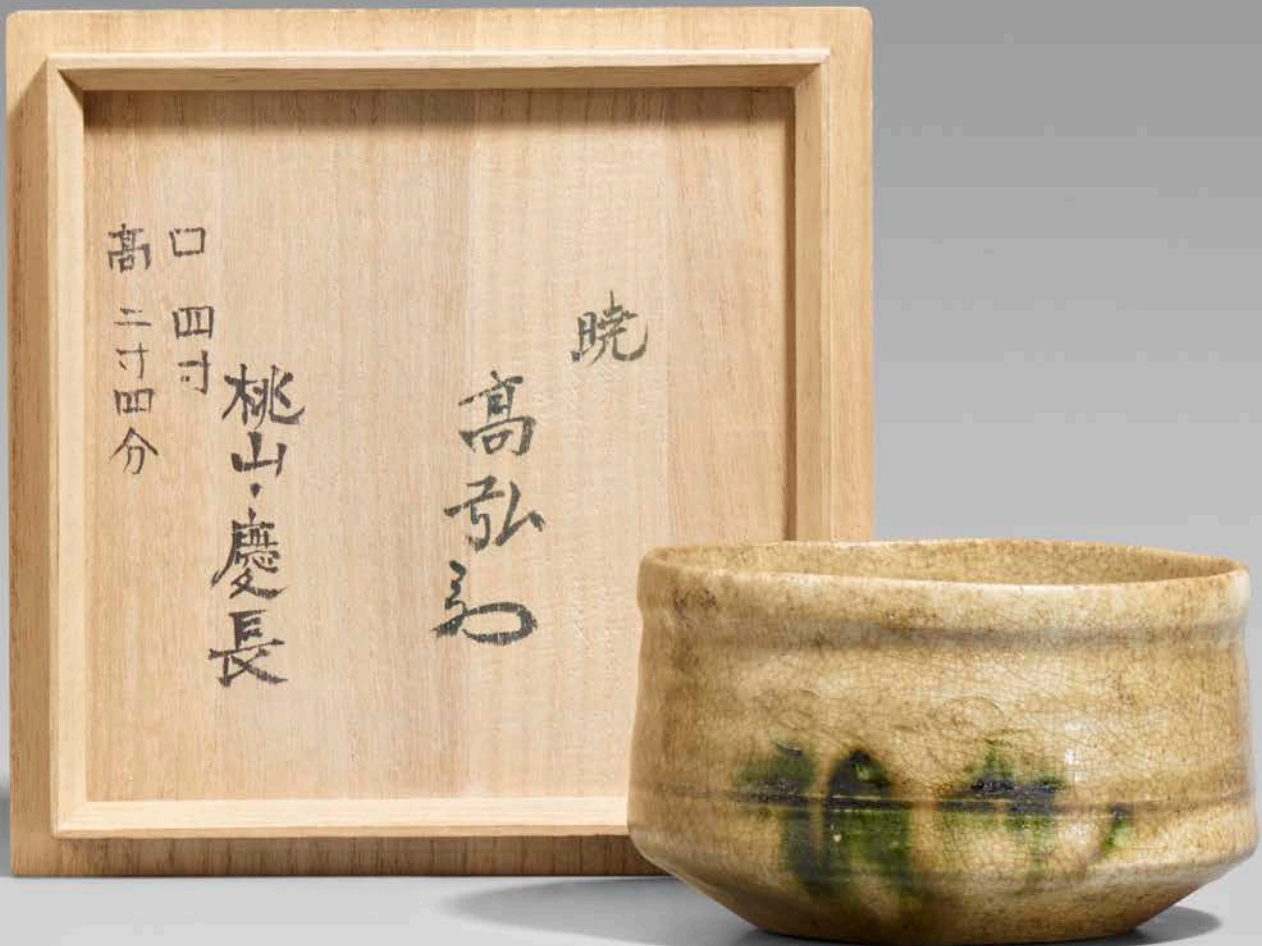 暁
高弘
桃山・慶長
口 四寸
髙 二寸四分